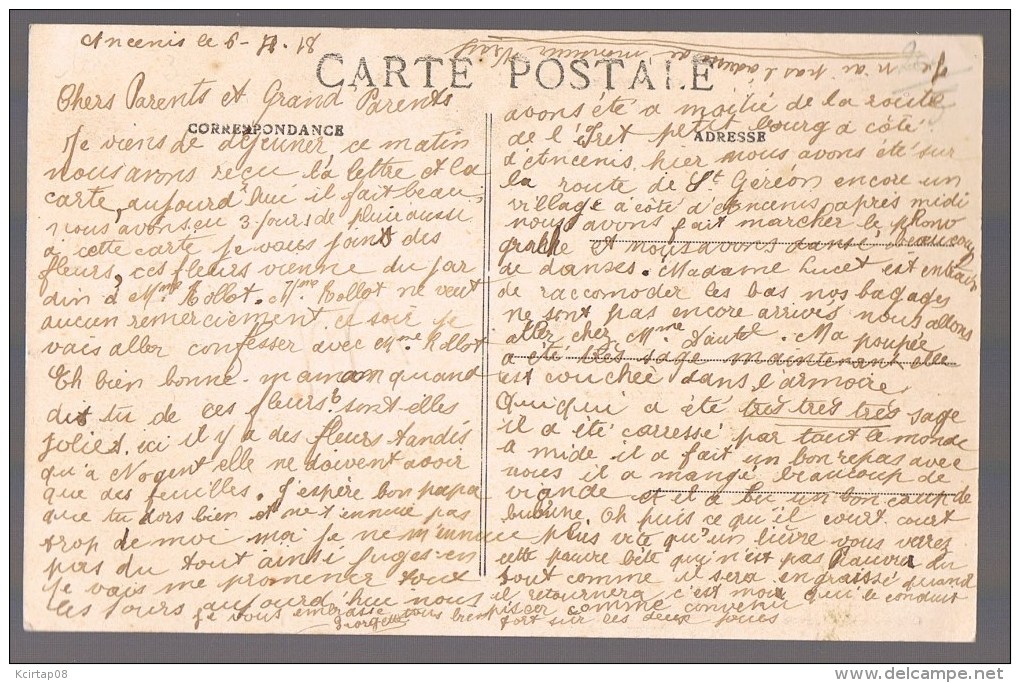 Ancenis le 6- -18
CARTE POSTALE
CORRESPONDANCE
ADRESSE
Chers Parents et Grand Parents
Je viens de déjeuner ce matin
nous avons reçu ta lettre et la
carte, aujourd'hui il fait beau
nous avons eu 3 jours de pluie aussi
à cette carte je vous joins des
fleurs, ces fleurs vienne du jar
din à Mme Rollot. Mme Rollot ne veut
aucun remerciement ce soir je
vais aller confesser avec Mme Rollot
Eh bien bonne-maman quand
dis tu de ces fleurs sont-elles
jolies, ici il y a des fleurs tandis
qu'à Nogent elle ne doivent avoir
que des feuilles. J'espère bon papa
que tu dors bien et ne t'ennuie pas
trop de moi moi je ne m'ennuie
pas du tout ainsi juges-en
je vais me promener tous
les jours aujourd'hui nous
avons été a moitié de la route
de l' petit bourg à côté
d'Ancenis, hier nous avons été sur
la route de St Géréon encore un
village à côté d'Ancenis après midi
nous avons fait marcher le Phono
graphe et nous avons dansé beaucoup
de danses. Madame Lucet est en train
de raccomoder les bas nos bagages
ne sont pas encore arrivés nous allons
allez cher Mme Dautel. Ma poupée
a été très sage maintenant elle
est couchée dans l'armoire
Quiqui a été très très très sage
il a été carressé par tout le monde
a midi il a fait un bon repas avec
nous il a mangé beaucoup de
viande et il a bu un bon coup de
Oh puis ce qu'il court court
plus vite qu'un lièvre vous varez
cette pauvre bête qui n'est pas
tout comme il sera engraissé quand
il retournera c'est moi qui le conduit
pisser comme convenu
Je vous embrasse tous bien fort sur les deux joues
Georgette
Je n'ai pas l'adresse
de monsieur
Kcirtap08